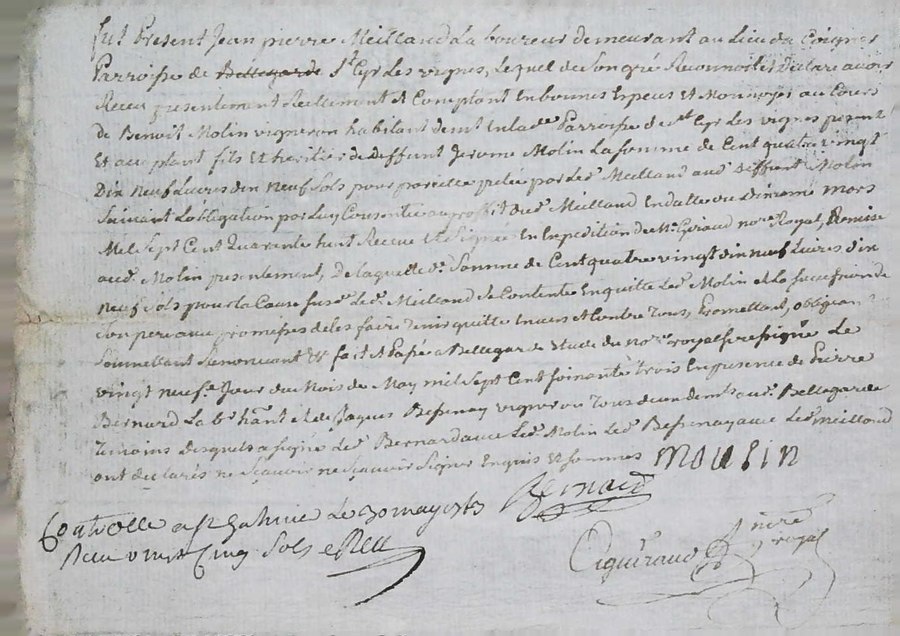 fut Present Jean pierre Meilland La boureur demeurant au Lieu de
Parroisse de Bellegarde St Cyr Les vignes, Lequel de Son gré Reconnoit et déclare avoir
Receu presentement Reellement et Comptant En bonnes Especes et Monnoyes au Cours
de Benoit Molin vigneron habitant Enlade Parroisse de St Cyr Les vignes present
Et acceptant fils Et heritier de deffunt Jerome Molin La Somme de Cent quatre vingt
Dix Neuf Livres dix neuf Sols pour pareille par Led. Meilland aud. deffunt Molin
Suivant Lobligation par Luy Consentie au proffit dud. Meilland En datte du mars
Mil Sept Cent Quarante huit Receue Et Signée En Expedition de Me Giraud nore. Royal, Remise
aud. Molin presentement, de laquelle de. Somme de Cent quatre vingt dix neuf Livres dix
neuf Sols pour la Cause Susd. Led. Meilland Se Contente En quitte Led. Molin et La Succession de
Son pere avec promesses de les faire tenir quitte Envers et Contre Tous, promettant, obligeant
Soumettant Renoncant &c fait et Passé a Bellegarde Etude du nore. royal Soussigné Le
vingt neufe. Jour du Mois de May mil Sept Cent Soixante trois En presence de Pierre
Bernard La br. hant. et de Jaques Bessenay vigneron Tous deux aud. Bellegarde
Temoins desquels a signé Led. Bernard avec Led. Molin Led. Bessenay avec Led. meilland
ont declarés ne Sçavoir ne Sçavoir Signer Enquis Et Sommés moulin
Bernard
Controllé a St Galmier Le 30 may 1763
Receu vingt Cinq Sols
Giraud nore royal